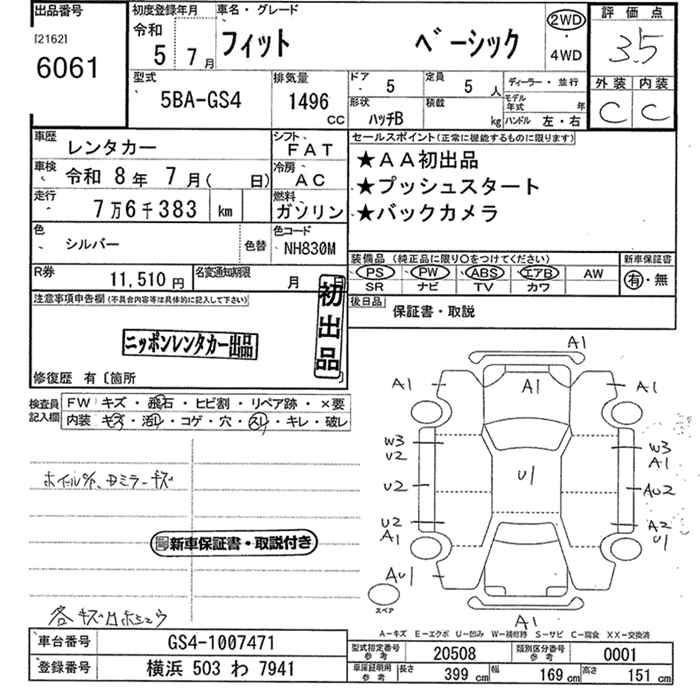 出品番号 初度登録年月 車名・グレード 評価点
[2162] 令和 2WD
6061 5 7月 フィット ベーシック ・ 3.5
4WD
型式 排気量 ドア 5 定員 5人 ディーラー・並行 外装 内装
5BA-GS4 1496 cc 形状 ハッチB 積載 kg モデル年式 年 C C
ハンドル 左・右
車歴 レンタカー シフト FAT セールスポイント(正常に機能するものに限ります)
車検 令和 8年 7月( 日) 冷房 AC ★AA初出品
走行 7万6千383 km 燃料 ガソリン ★プッシュスタート
★バックカメラ
色 シルバー 色替 色コード NH830M
装備品(純正品に限り○をつけてください) 新車保証書
R券 11,510円 名変通知期限 月 PS PW ABS エアB AW 有・無
SR ナビ TV カワ
注意事項申告欄(不具合内容等は具体的に記入して下さい) 初出品 後日品 保証書・取説
ニッポンレンタカー出品
修復歴 有〔箇所
検査員記入欄 FW キズ・飛石・ヒビ割・リペア跡・×要
内装 キズ・汚レ・コゲ・穴・スレ・キレ・破レ
A1
A1 A1 A1
W3 W3
U2 A1
U2 U1 AU2
U2 A2
A1 U1
AU1
A1
スペア
ミラーキズ
新車保証書・取説付き
各キズ
A-キズ E-エクボ U-凹み W-補修跡 S-サビ C-腐食 XX-交換済
車台番号 GS4-1007471 型式指定番号 参考 20508 類別区分番号 参考 0001
登録番号 横浜 503 わ 7941 車庫証明用 参考 長さ 399 cm 幅 169 cm 高さ 151 cm